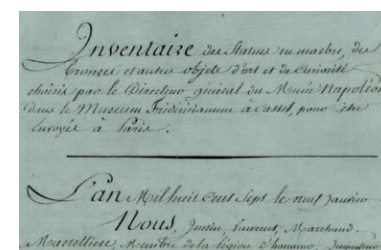 Inventaire des Statues en marbre, des
Bronzes et autres objets d'art et de Curiosité
choisis par le Directeur général du Musée Napoléon
dans le Museum Fridericianum à Cassel, pour être
Envoyés à Paris.
L'an Mil huit Cent Sept le neuf Janvier
Nous, Justin, Laurent, Marchand
Membre de la légion d'honneur, Inspecteur